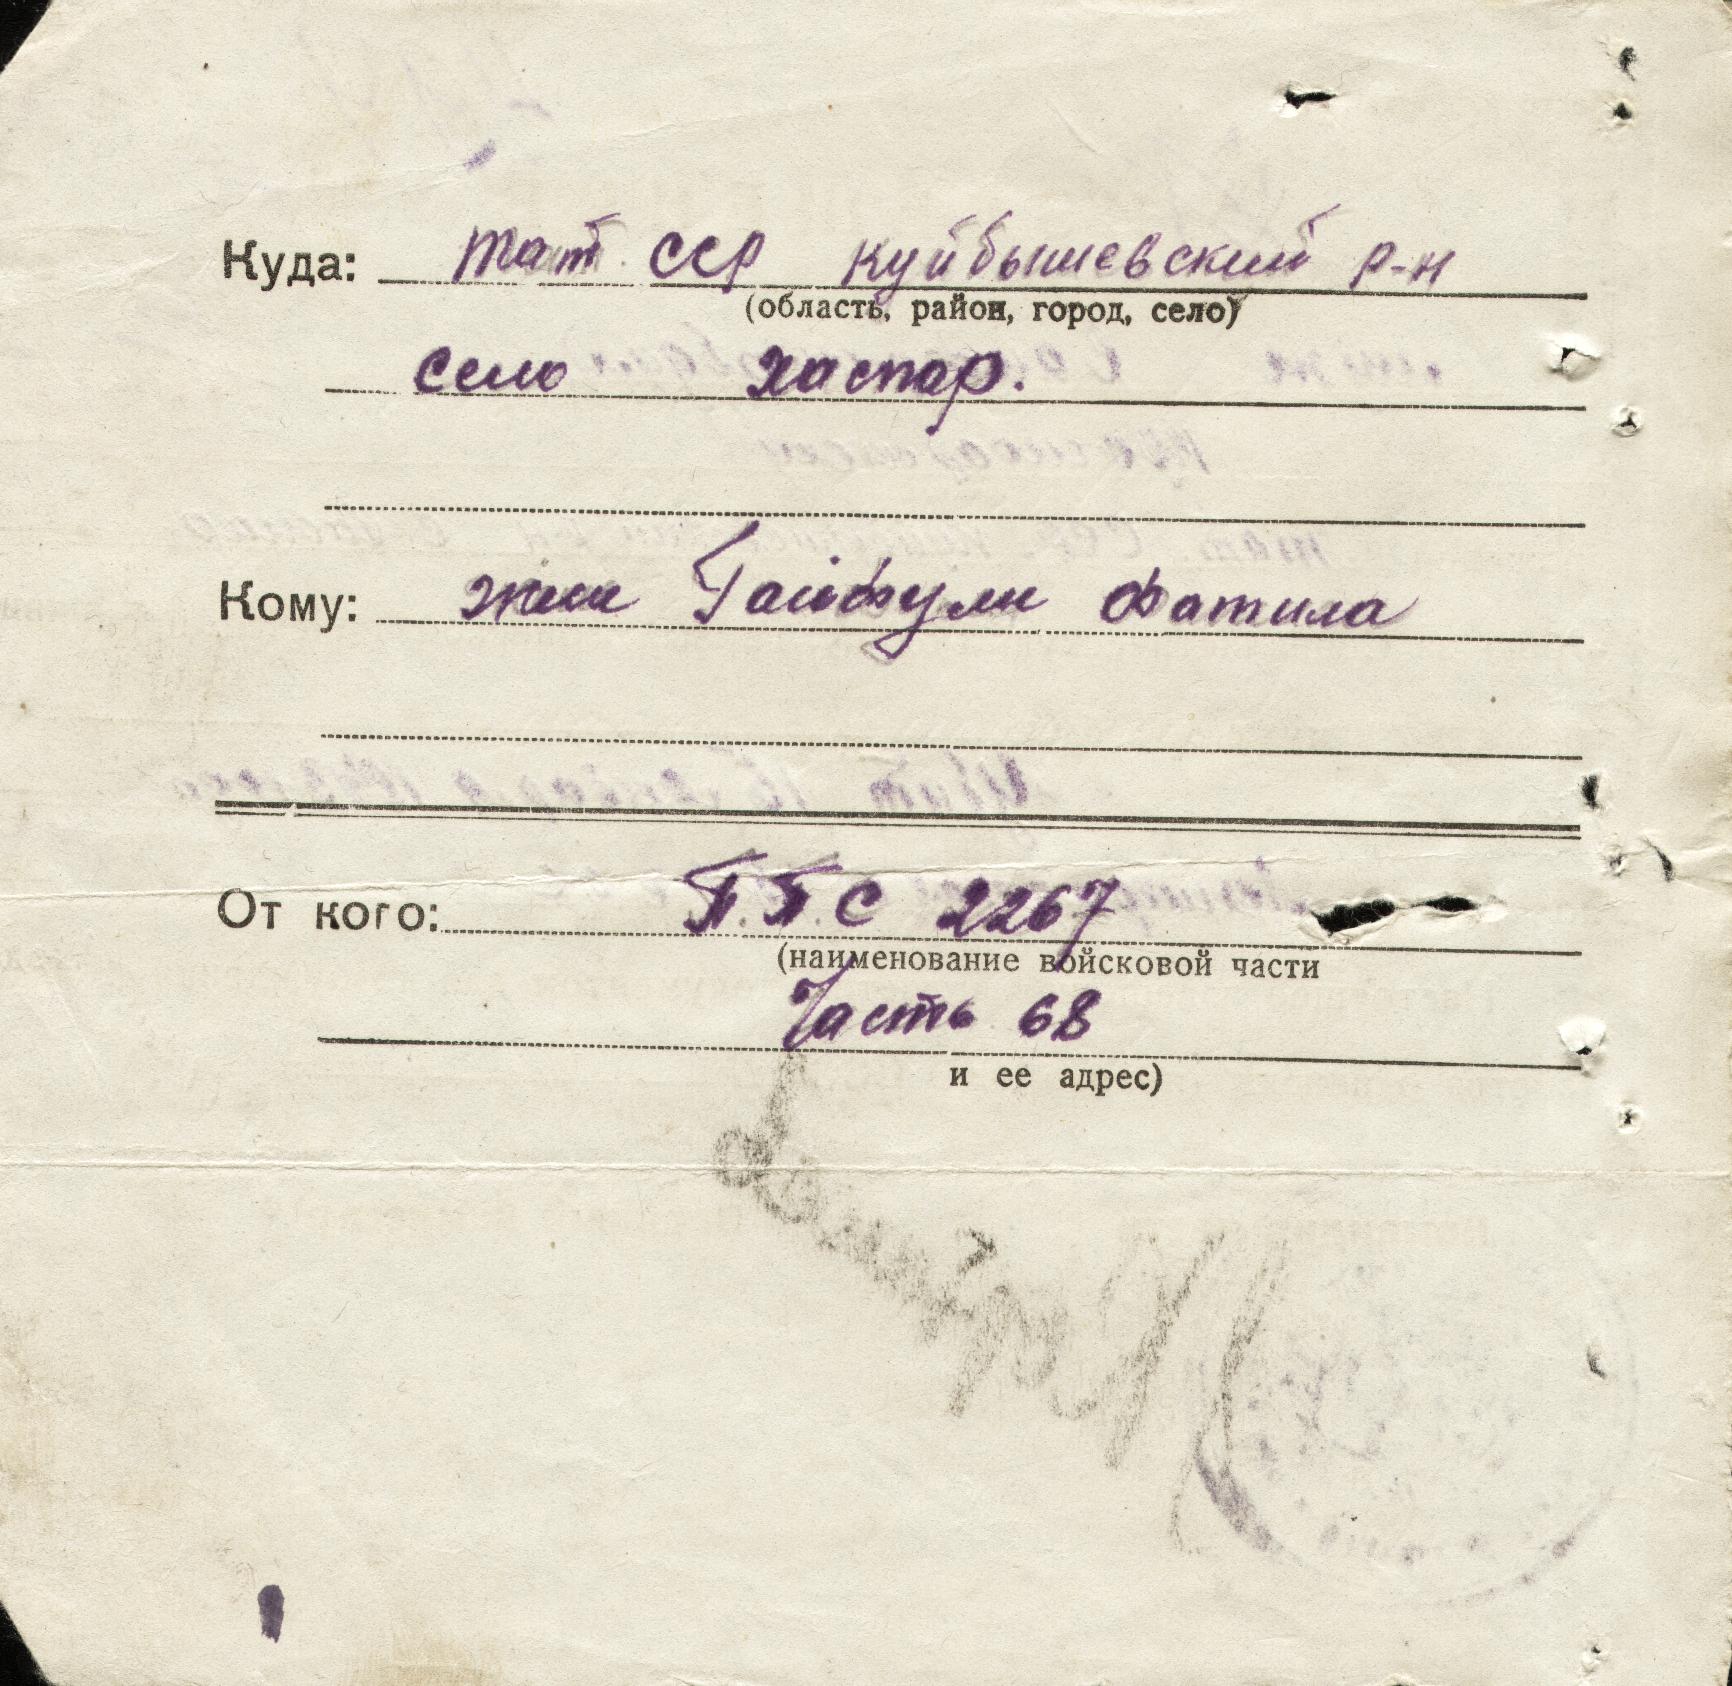 Куда: Тат. ССР Куйбышевский р-н
(область, район, город, село)
село Хаспар.
Кому: жни Гайфули Фатима
От кого: П.П.С 2267
(наименование войсковой части
Часть 68
и ее адрес)